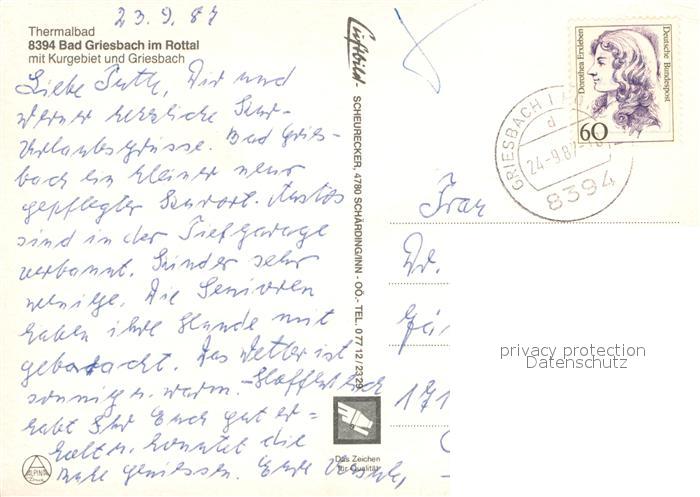 23.9.87
Thermalbad
8394 Bad Griesbach im Rottal
mit Kurgebiet und Griesbach
Liebe Dir und
Werner herzliche Kur-
Urlaubsgrüsse. Bad Gries-
bach ein kleiner neuer
gepflegter Kurort. Autos
sind in der Tiefgarage
verbannt. Kinder sehr
wenige. Die Senioren
haben ihre Hunde mit
gebracht. Das Wetter ist
sonnig u. warm. Hoffentlich
habt Ihr Euch gut er=
holt u. konntet die
genießen. Eure
Luftbild- SCHEURECKER, 4780 SCHÄRDING/INN - OÖ.- TEL. 0 77 12 / 23 29
Das Zeichen
für Qualität
ALPINA
Dorothea Erxleben
Deutsche Bundespost
60
GRIESBACH I
d
24-9.87
8394
Frau
Dr.
171
privacy protection
Datenschutz